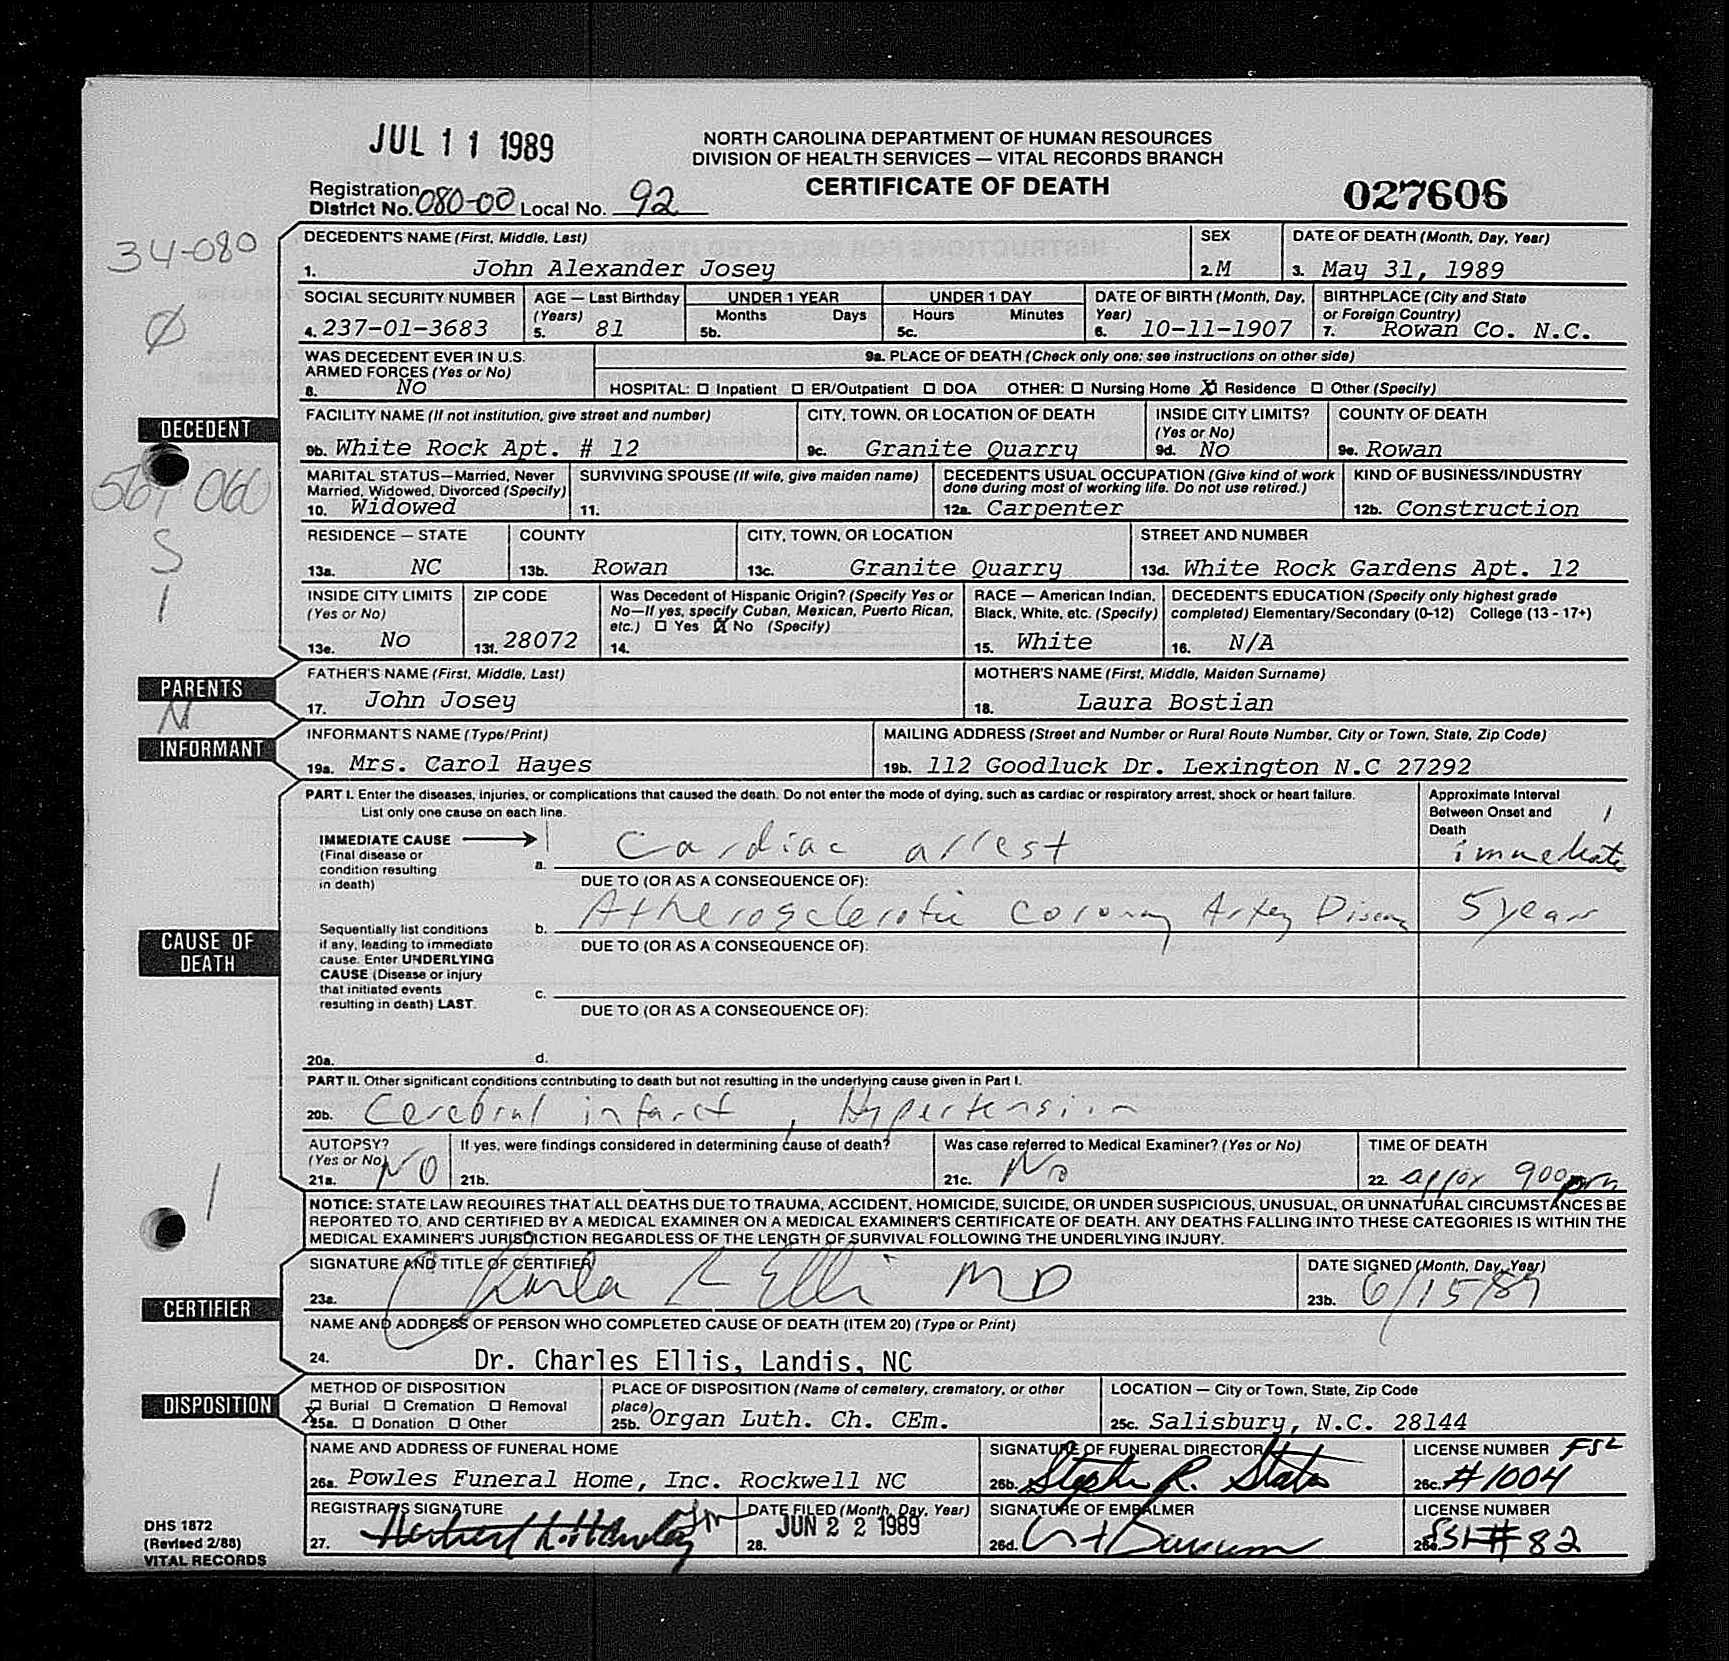 JUL 11 1989
NORTH CAROLINA DEPARTMENT OF HUMAN RESOURCES
DIVISION OF HEALTH SERVICES — VITAL RECORDS BRANCH
CERTIFICATE OF DEATH
027606
Registration District No. 080-00 Local No. 92
34-080
DECEDENT'S NAME (First, Middle, Last) SEX DATE OF DEATH (Month, Day, Year)
1. John Alexander Josey 2. M 3. May 31, 1989
SOCIAL SECURITY NUMBER AGE — Last Birthday UNDER 1 YEAR UNDER 1 DAY DATE OF BIRTH (Month, Day, BIRTHPLACE (City and State
(Years) Months Days Hours Minutes Year) or Foreign Country)
4. 237-01-3683 5. 81 5b. 5c. 6. 10-11-1907 7. Rowan Co. N.C.
WAS DECEDENT EVER IN U.S. 9a. PLACE OF DEATH (Check only one: see instructions on other side)
ARMED FORCES (Yes or No)
8. No HOSPITAL: Inpatient ER/Outpatient DOA OTHER: Nursing Home X Residence Other (Specify)
DECEDENT
FACILITY NAME (If not institution, give street and number) CITY, TOWN, OR LOCATION OF DEATH INSIDE CITY LIMITS? COUNTY OF DEATH
(Yes or No)
9b. White Rock Apt. # 12 9c. Granite Quarry 9d. No 9e. Rowan
MARITAL STATUS—Married, Never SURVIVING SPOUSE (If wife, give maiden name) DECEDENT'S USUAL OCCUPATION (Give kind of work KIND OF BUSINESS/INDUSTRY
Married, Widowed, Divorced (Specify) done during most of working life. Do not use retired.)
10. Widowed 11. 12a. Carpenter 12b. Construction
060
S
1
RESIDENCE — STATE COUNTY CITY, TOWN, OR LOCATION STREET AND NUMBER
13a. NC 13b. Rowan 13c. Granite Quarry 13d. White Rock Gardens Apt. 12
INSIDE CITY LIMITS ZIP CODE Was Decedent of Hispanic Origin? (Specify Yes or RACE — American Indian, DECEDENT'S EDUCATION (Specify only highest grade
(Yes or No) No—If yes, specify Cuban, Mexican, Puerto Rican, Black, White, etc. (Specify) completed) Elementary/Secondary (0-12) College (13 - 17+)
etc.) Yes X No (Specify)
13e. No 13f. 28072 14. 15. White 16. N/A
PARENTS
FATHER'S NAME (First, Middle, Last) MOTHER'S NAME (First, Middle, Maiden Surname)
17. John Josey 18. Laura Bostian
N
INFORMANT
INFORMANT'S NAME (Type/Print) MAILING ADDRESS (Street and Number or Rural Route Number, City or Town, State, Zip Code)
19a. Mrs. Carol Hayes 19b. 112 Goodluck Dr. Lexington N.C 27292
PART I. Enter the diseases, injuries, or complications that caused the death. Do not enter the mode of dying, such as cardiac or respiratory arrest, shock or heart failure. Approximate Interval
List only one cause on each line. Between Onset and
Death
IMMEDIATE CAUSE
(Final disease or
condition resulting
in death)
a. Cardiac arrest immediate
DUE TO (OR AS A CONSEQUENCE OF):
CAUSE OF DEATH
Sequentially list conditions
if any, leading to immediate
cause. Enter UNDERLYING
CAUSE (Disease or injury
that initiated events
resulting in death) LAST.
b. Atherosclerotic Coronary Artery Disease 5 years
DUE TO (OR AS A CONSEQUENCE OF):
c.
DUE TO (OR AS A CONSEQUENCE OF):
20a. d.
PART II. Other significant conditions contributing to death but not resulting in the underlying cause given in Part I.
20b. Cerebral infarct, Hypertension
AUTOPSY? If yes, were findings considered in determining cause of death? Was case referred to Medical Examiner? (Yes or No) TIME OF DEATH
(Yes or No)
21a. NO 21b. 21c. No 22. appox 900 pm
1
NOTICE: STATE LAW REQUIRES THAT ALL DEATHS DUE TO TRAUMA, ACCIDENT, HOMICIDE, SUICIDE, OR UNDER SUSPICIOUS, UNUSUAL, OR UNNATURAL CIRCUMSTANCES BE
REPORTED TO, AND CERTIFIED BY A MEDICAL EXAMINER ON A MEDICAL EXAMINER'S CERTIFICATE OF DEATH. ANY DEATHS FALLING INTO THESE CATEGORIES IS WITHIN THE
MEDICAL EXAMINER'S JURISDICTION REGARDLESS OF THE LENGTH OF SURVIVAL FOLLOWING THE UNDERLYING INJURY.
CERTIFIER
SIGNATURE AND TITLE OF CERTIFIER DATE SIGNED (Month, Day, Year)
23a. Ellis MD 23b. 6/15/89
NAME AND ADDRESS OF PERSON WHO COMPLETED CAUSE OF DEATH (ITEM 20) (Type or Print)
24. Dr. Charles Ellis, Landis, NC
DISPOSITION
METHOD OF DISPOSITION PLACE OF DISPOSITION (Name of cemetery, crematory, or other LOCATION — City or Town, State, Zip Code
X Burial Cremation Removal place)
25a. Donation Other 25b. Organ Luth. Ch. CEm. 25c. Salisbury, N.C. 28144
NAME AND ADDRESS OF FUNERAL HOME SIGNATURE OF FUNERAL DIRECTOR LICENSE NUMBER FSL
26a. Powles Funeral Home, Inc. Rockwell NC 26b. Stephen R. 26c. #1004
REGISTRAR'S SIGNATURE DATE FILED (Month, Day, Year) SIGNATURE OF EMBALMER LICENSE NUMBER
27. 28. JUN 22 1989 26d. 26e. # 82
DHS 1872
(Revised 2/88)
VITAL RECORDS